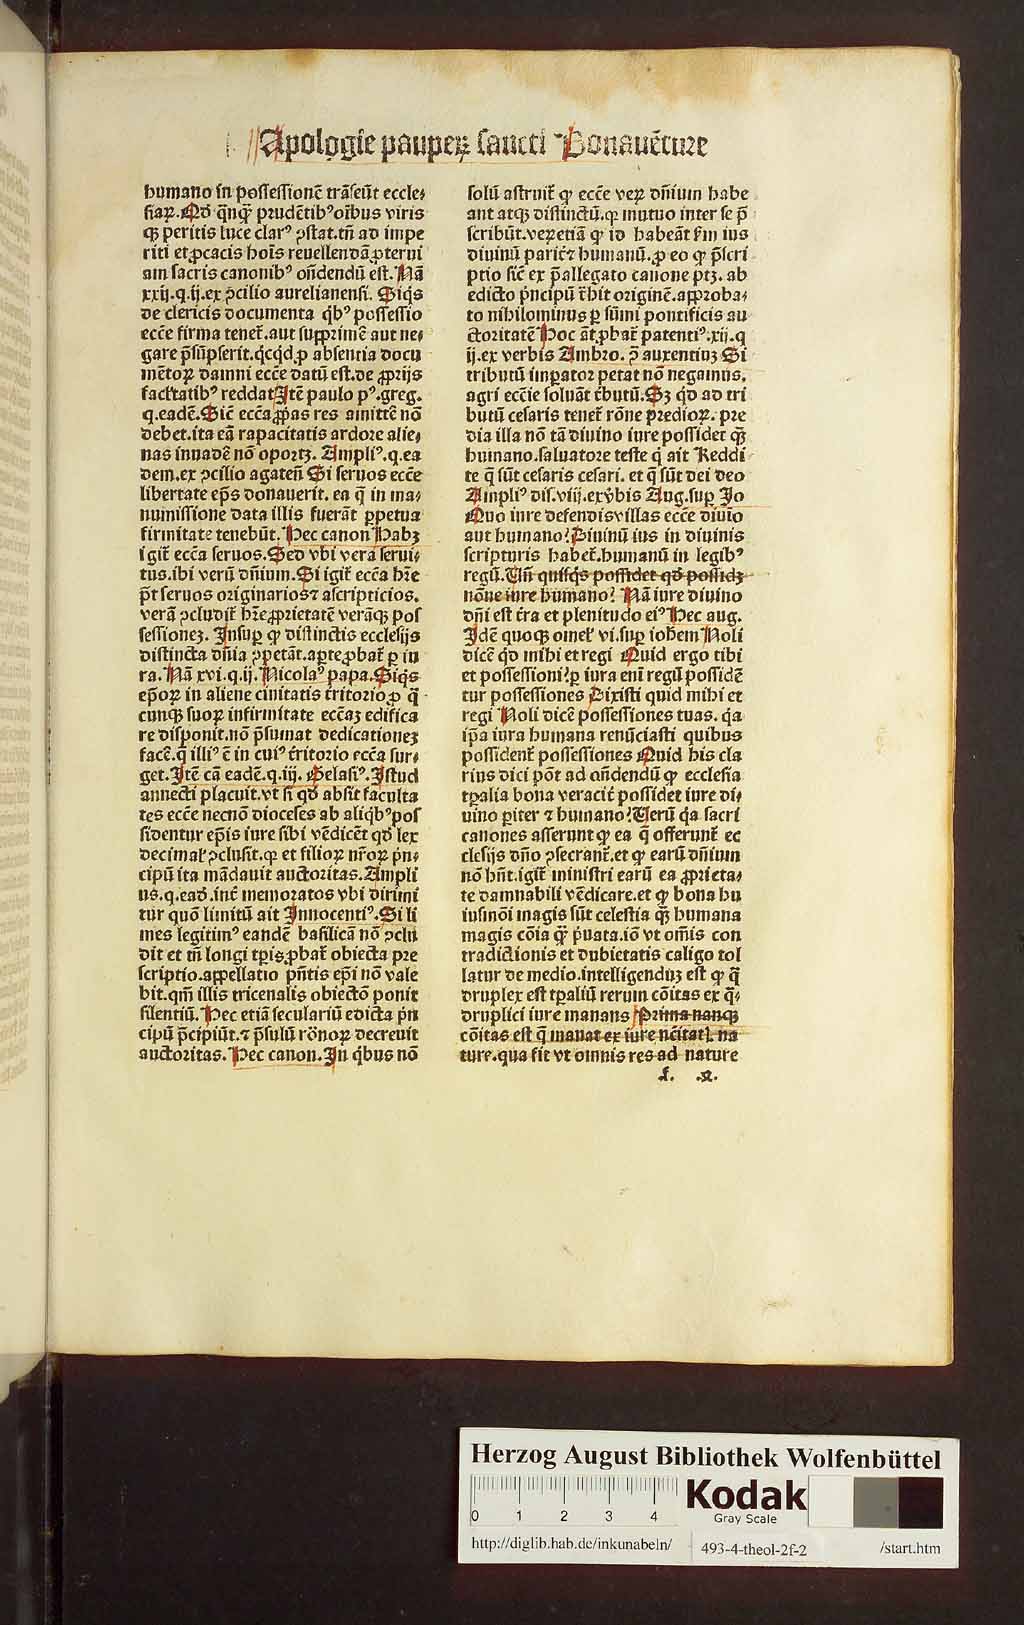 Apologie pauperꝝ sancti Bonauēture
humano in possessionē trāseūt eccle⸗
siaꝝ.Qđ qͥnqꝫ prudētibꝰ oībus viris
qꝫ peritis luce clarꝰ ꝯstat.tn̄ ad impe
riti et ꝓcacis hoīs reuellendā ꝓterui
am sacris canonibꝰ on̄dendū est.Nā
xxij.q.ij.ex ꝯcilio aurelianensi. Siqͥs
de clericis documenta qͥbꝰ possessio
ecce firma tenet᷑.aut supprimē aut ne⸗
gare p̄sūpserit.qͥcqͥd ꝓ absentia docu
mētoꝝ damni ecce datū est.de ꝓprijs
facltatibꝰ reddat Itē paulo pꝰ.greg.
q.eadē.Sic̄ ecca ꝓpas res amittē nō
debet.ita eā rapacitatis ardore alie⸗
nas inuadē nō oportꝫ. Ampliꝰ.q.ea
dem.ex ꝯcilio agateñ Si seruos ecce
libertate ep̄s donauerit. ea q̄ in ma⸗
numissione data illis fuerāt ꝑpetua
firmitate tenebūt. Hec canon Habꝫ
igit᷑ ecca seruos.Sed vbi vera serui⸗
tus.ibi verū dn̄ium.Si igit᷑ ecca hr̄e
pt̄ seruos originarios ⁊ ascripticios.
verā ꝯcludit᷑ hr̄e ꝓprietatē veraqꝫ pos
sessionez. Insuꝑ ꝙ distinctis ecclesijs
distincta dn̄ia ꝯpetāt.aꝑte ꝓbat᷑ ꝑ iu
ra. Nā xvi.q.ij. Nicolaꝰ papa.Siqͥs
ep̄oꝝ in aliene ciuitatis t̄ritorio ꝓ q̄
cunqꝫ suoꝝ infirmitate ecclaꝫ edifica
re disponit.nō p̄sumat dedicationez
facē.q̄ illiꝰ ē in cuiꝰ t̄ritorio ecca sur⸗
get.Itē cā eadē.q.iij. Gelasiꝰ.Istud
annecti placuit.vt si qđ absit faculta
tes ecce necnō dioceses ab aliqͥbꝰ pos
sidentur ep̄is iure sibi vēdicēt qđ lex
decimal᷑ ꝯclusit.ꝙ et filioꝝ nr̄oꝝ pͥn⸗
cipū ita mādauit auctoritas. Ampli
us.q.eađ.int᷑ memoratos vbi dirimi
tur quō limitū ait Innocentiꝰ.Si li
mes legitimꝰ eandē basilicā nō ꝯclu
dit et tn̄ longi tp̄ris ꝓbat᷑ obiecta pre
scriptio.appellatio pn̄tis ep̄i nō vale
bit.qm̄ illis tricenalis obiectō ponit
silentiū. Hec etiā seculariū edicta pͥn
cipū p̄cipiūt.⁊ p̄sulū rōnoꝝ decreuit
auctoritas. Hec canon.In qͥbus nō
solū astruit᷑ ꝙ ecce veꝝ dn̄ium habe
ant atqꝫ distinctū.ꝙ mutuo inter se p̄
scribūt.veꝝ etiā ꝙ id habeāt s̄m ius
diuinū parit᷑ ⁊ humanū.ꝓ eo ꝙ p̄scri
ptio sic̄ ex p̄allegato canone ptꝫ. ab
edicto pͥncipū t̄hit originē.approba⸗
to nihilominus ꝑ sūmi pontificis au
ctoritatē Hoc āt ꝓbat᷑ patentiꝰ.xij.q
ij.ex verbis Ambro. ꝯ̄ auxentiuꝫ Si
tributū imꝑator petat nō negamus.
agri eccie soluāt t̄butū.Sꝫ qđ ad tri
butū cesaris tenet᷑ rōne predioꝝ. pre
dia illa nō tā diuino iure possidet qꝫ
humano.saluatore teste q̄ ait Reddi
te q̄ sūt cesaris cesari. et q̄ sūt dei deo
Ampliꝰ dis.viij.ex v̄bis Aug.suꝑ Jo
Quo iure defendis villas ecce diuīo
aut humano? Diuinū ius in diuinis
scripturis habet᷑.humanū in legibꝰ
regū.Vn̄ quisqͥs possidet qđ possidꝫ
nōne iure humano? Nā iure diuino
dn̄i est t̄ra et plenitudo eiꝰ Hec aug.
Idē quoqꝫ omel᷑ vi.suꝑ ioh̄em Noli
dicē qđ mihi et regi Quid ergo tibi
et possessioni?ꝑ iura eni regū possidē
tur possessiones Dixisti quid mihi et
regi Noli dicē possessiones tuas. qͥa
ip̄a iura humana renūciasti quibus
possident᷑ possessiones Quid his cla
rius dici pōt ad on̄dendū ꝙ ecclesia
tp̄alia bona veracit᷑ possidet iure di⸗
uino ꝑiter ⁊ humano?Verū qͥa sacri
canones asserunt ꝙ ea q̄ offerunt᷑ ec
clesijs dn̄o ꝯsecrant᷑.et ꝙ earū dn̄ium
nō hn̄t.igit᷑ ministri earū ea ꝓprieta⸗
te damnabili vēdicare.et ꝙ bona hu
iusmōi magis sūt celestia qꝫ humana
magis cōia qꝫ pͥuata.iō vt om̄is con
tradictionis et dubietatis caligo tol
latur de medio.intelligenduꝫ est ꝙ q̄
druplex est tp̄aliū rerum cōitas ex q̄⸗
druplici iure manans Prima nanqꝫ
cōitas est q̄ manat ex iure nēitatꝭ na
ture.qua fit vt omnis res ad nature
f. .x.
Herzog August Bibliothek Wolfenbüttel
0 1 2 3 4
Kodak
Gray Scale
http://diglib.hab.de/inkunabeln/ 493-4-theol-2f-2 /start.htm